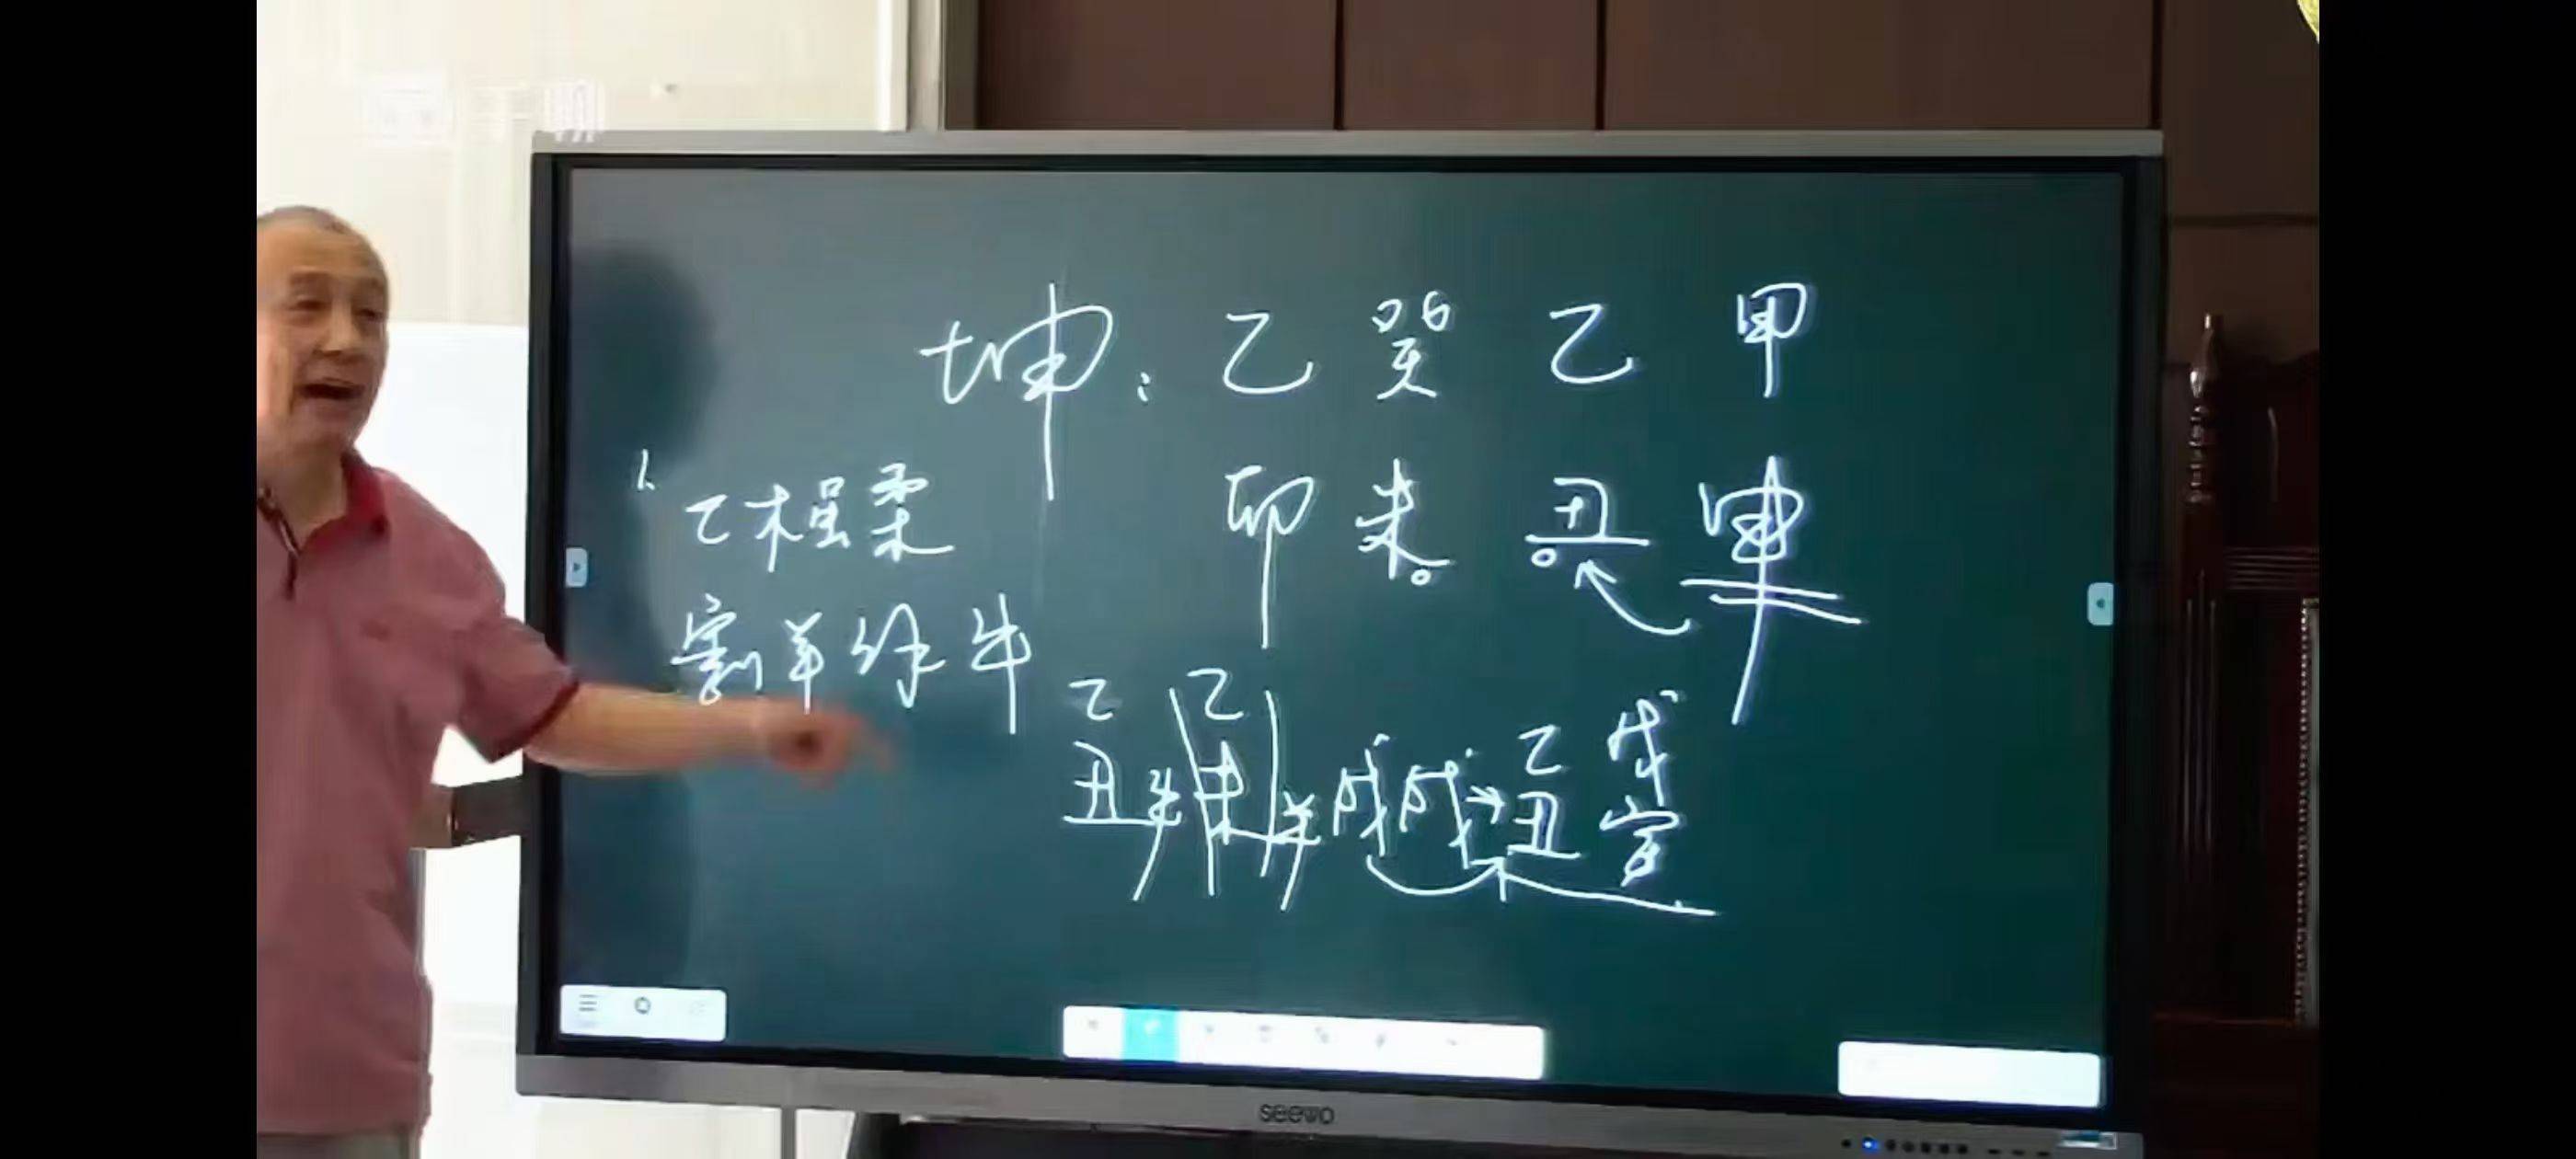 坤：乙 癸 乙 甲
卯 未 丑 申
1、乙木虽柔
刲羊解牛
乙 乙
丑牛 未羊 戌戌→乙丑 戊寅
seewo